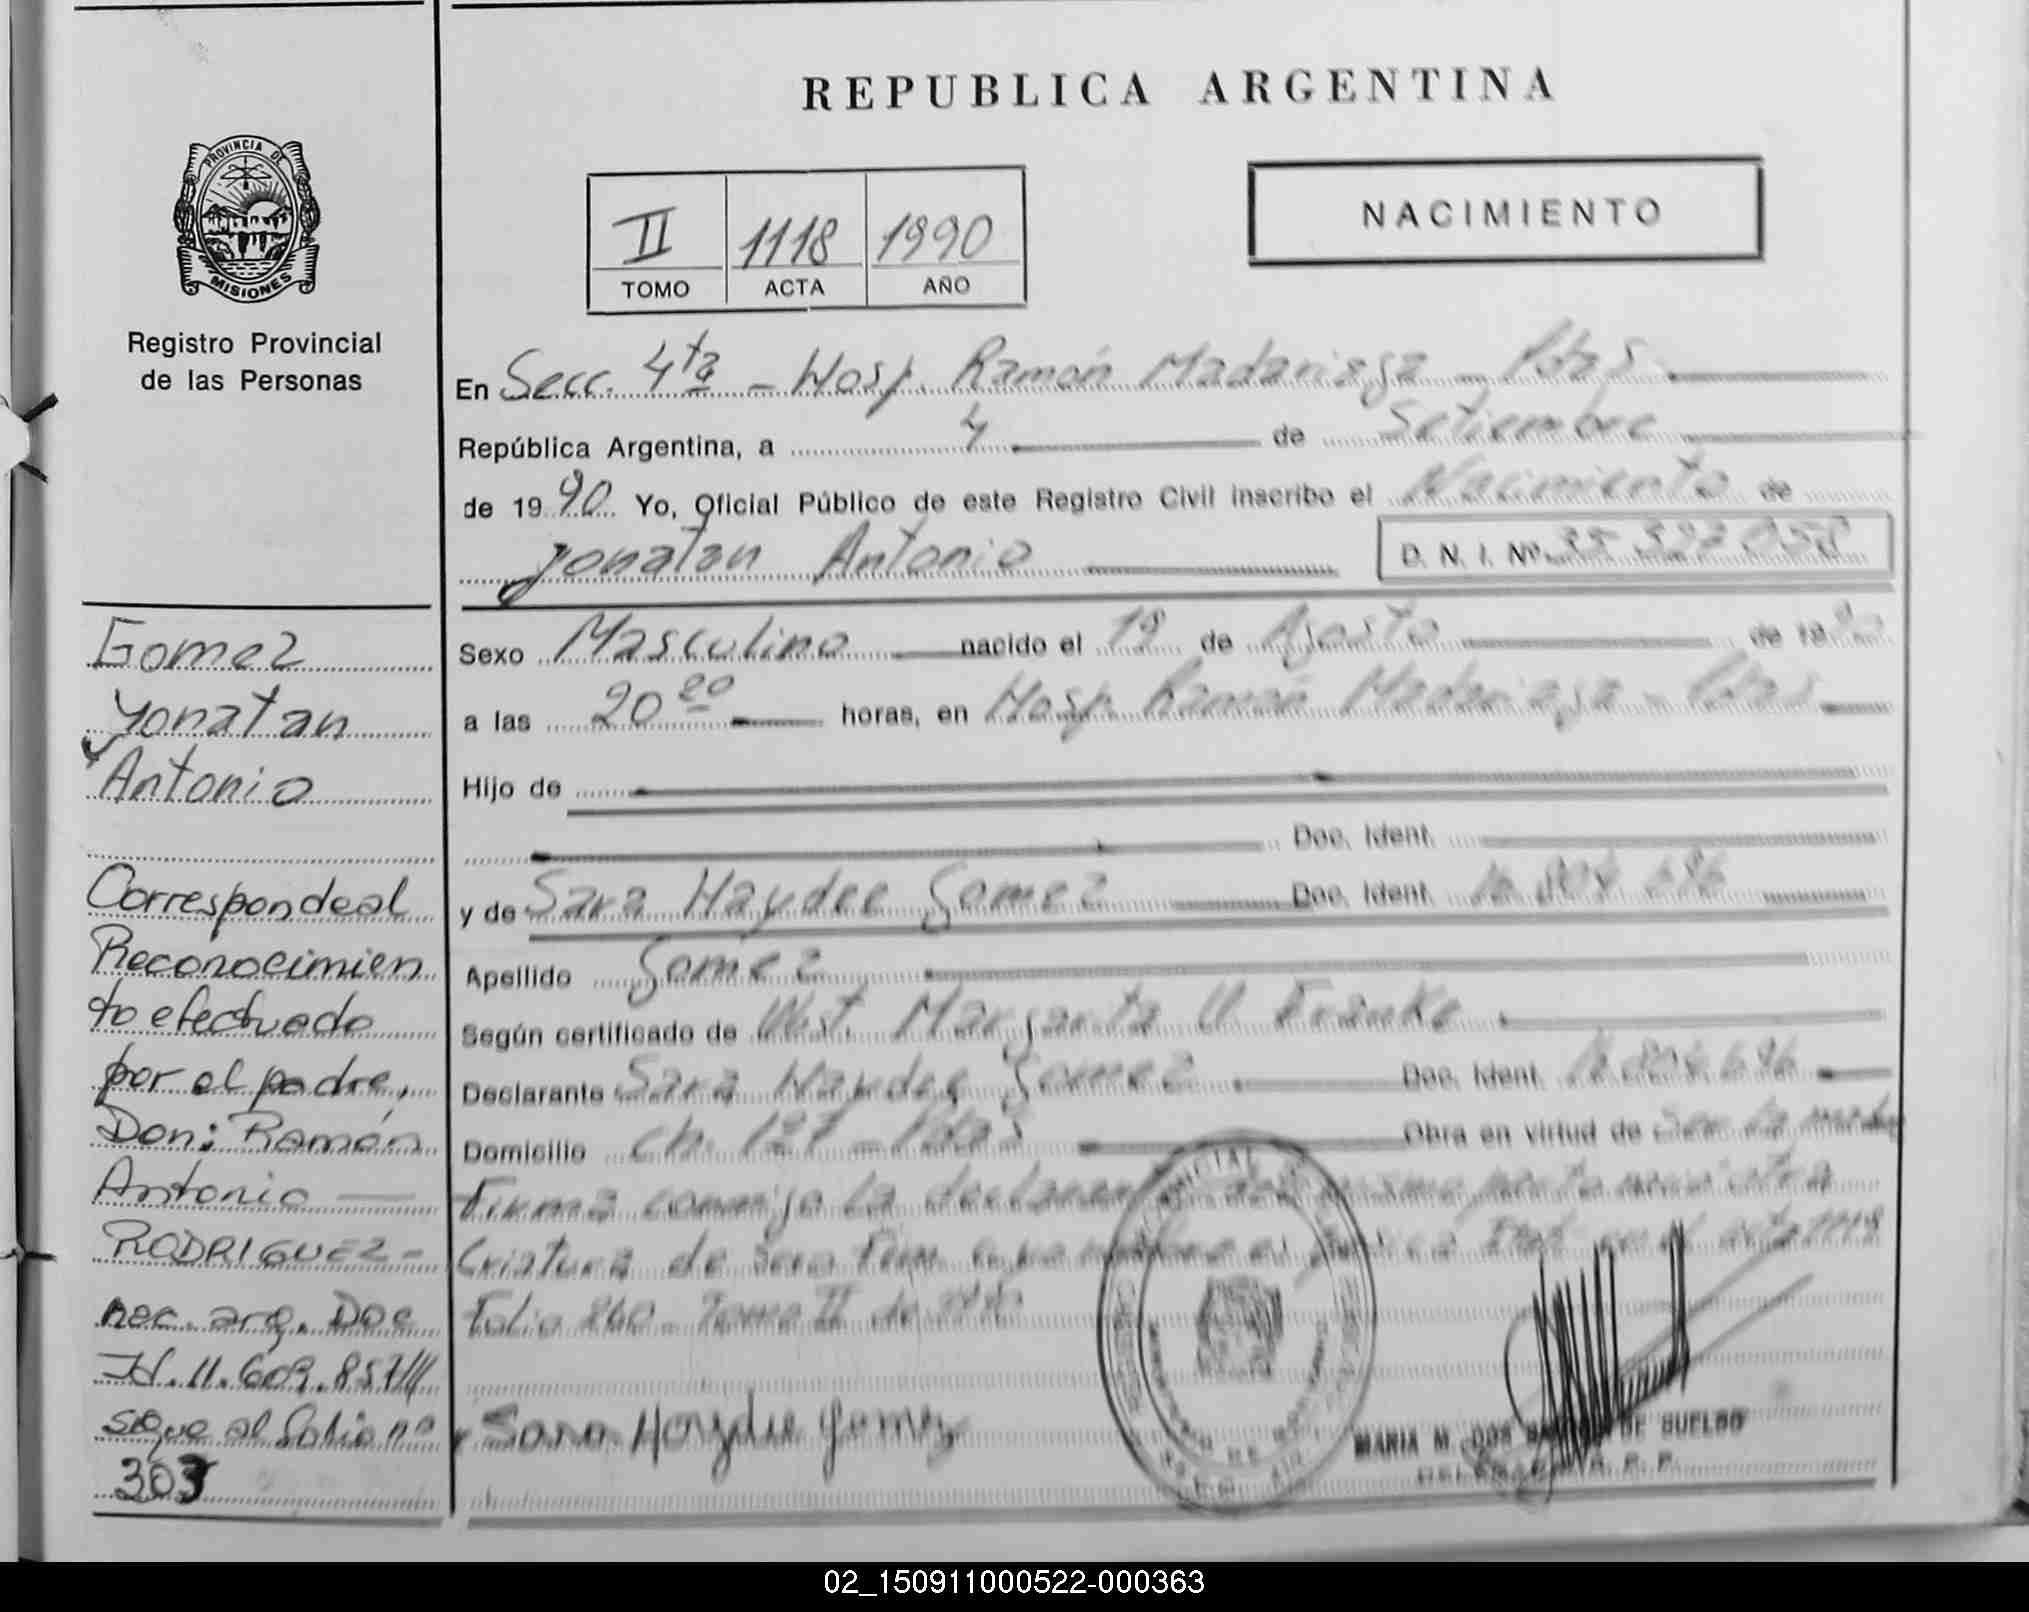 REPUBLICA ARGENTINA
PROVINCIA DE
MISIONES
Registro Provincial
de las Personas
II 1118 1990
TOMO ACTA AÑO
NACIMIENTO
En Secc. 4ta - Hosp. Ramón Madariaga - Pdas
República Argentina, a 4 de Setiembre
de 1990 Yo, Oficial Público de este Registro Civil inscribo el Nacimiento de
Yonatan Antonio D. N. I. Nº
Sexo Masculino nacido el de Agosto de 1990
a las 20 20 horas, en Hosp. Ramón Madariaga - Pdas
Hijo de
Doc. Ident.
y de Sara Haydee Gomez Doc. Ident.
Apellido Gomez
Según certificado de Obst. Margarita Franke
Declarante Sara Haydee Gomez Doc. Ident.
Domicilio Ch. 127 - Pdas Obra en virtud de Ser la madre
Firma conmigo la declarante del mismo parto nació otra
Criatura de sexo Fem en el acta
Folio 260 Tomo II de 1990
Sara Haydee Gomez
MARIA M. DOS DE SUELDO
R. P. P.
Gomez
Yonatan
Antonio
Corresponde al
Reconocimien
to efectuado
por el padre,
Don: Ramón
Antonio
RODRIGUEZ-
nac. arg. Doc
Id. 11.609.857///
sigue al folio nº
303
02_150911000522-000363